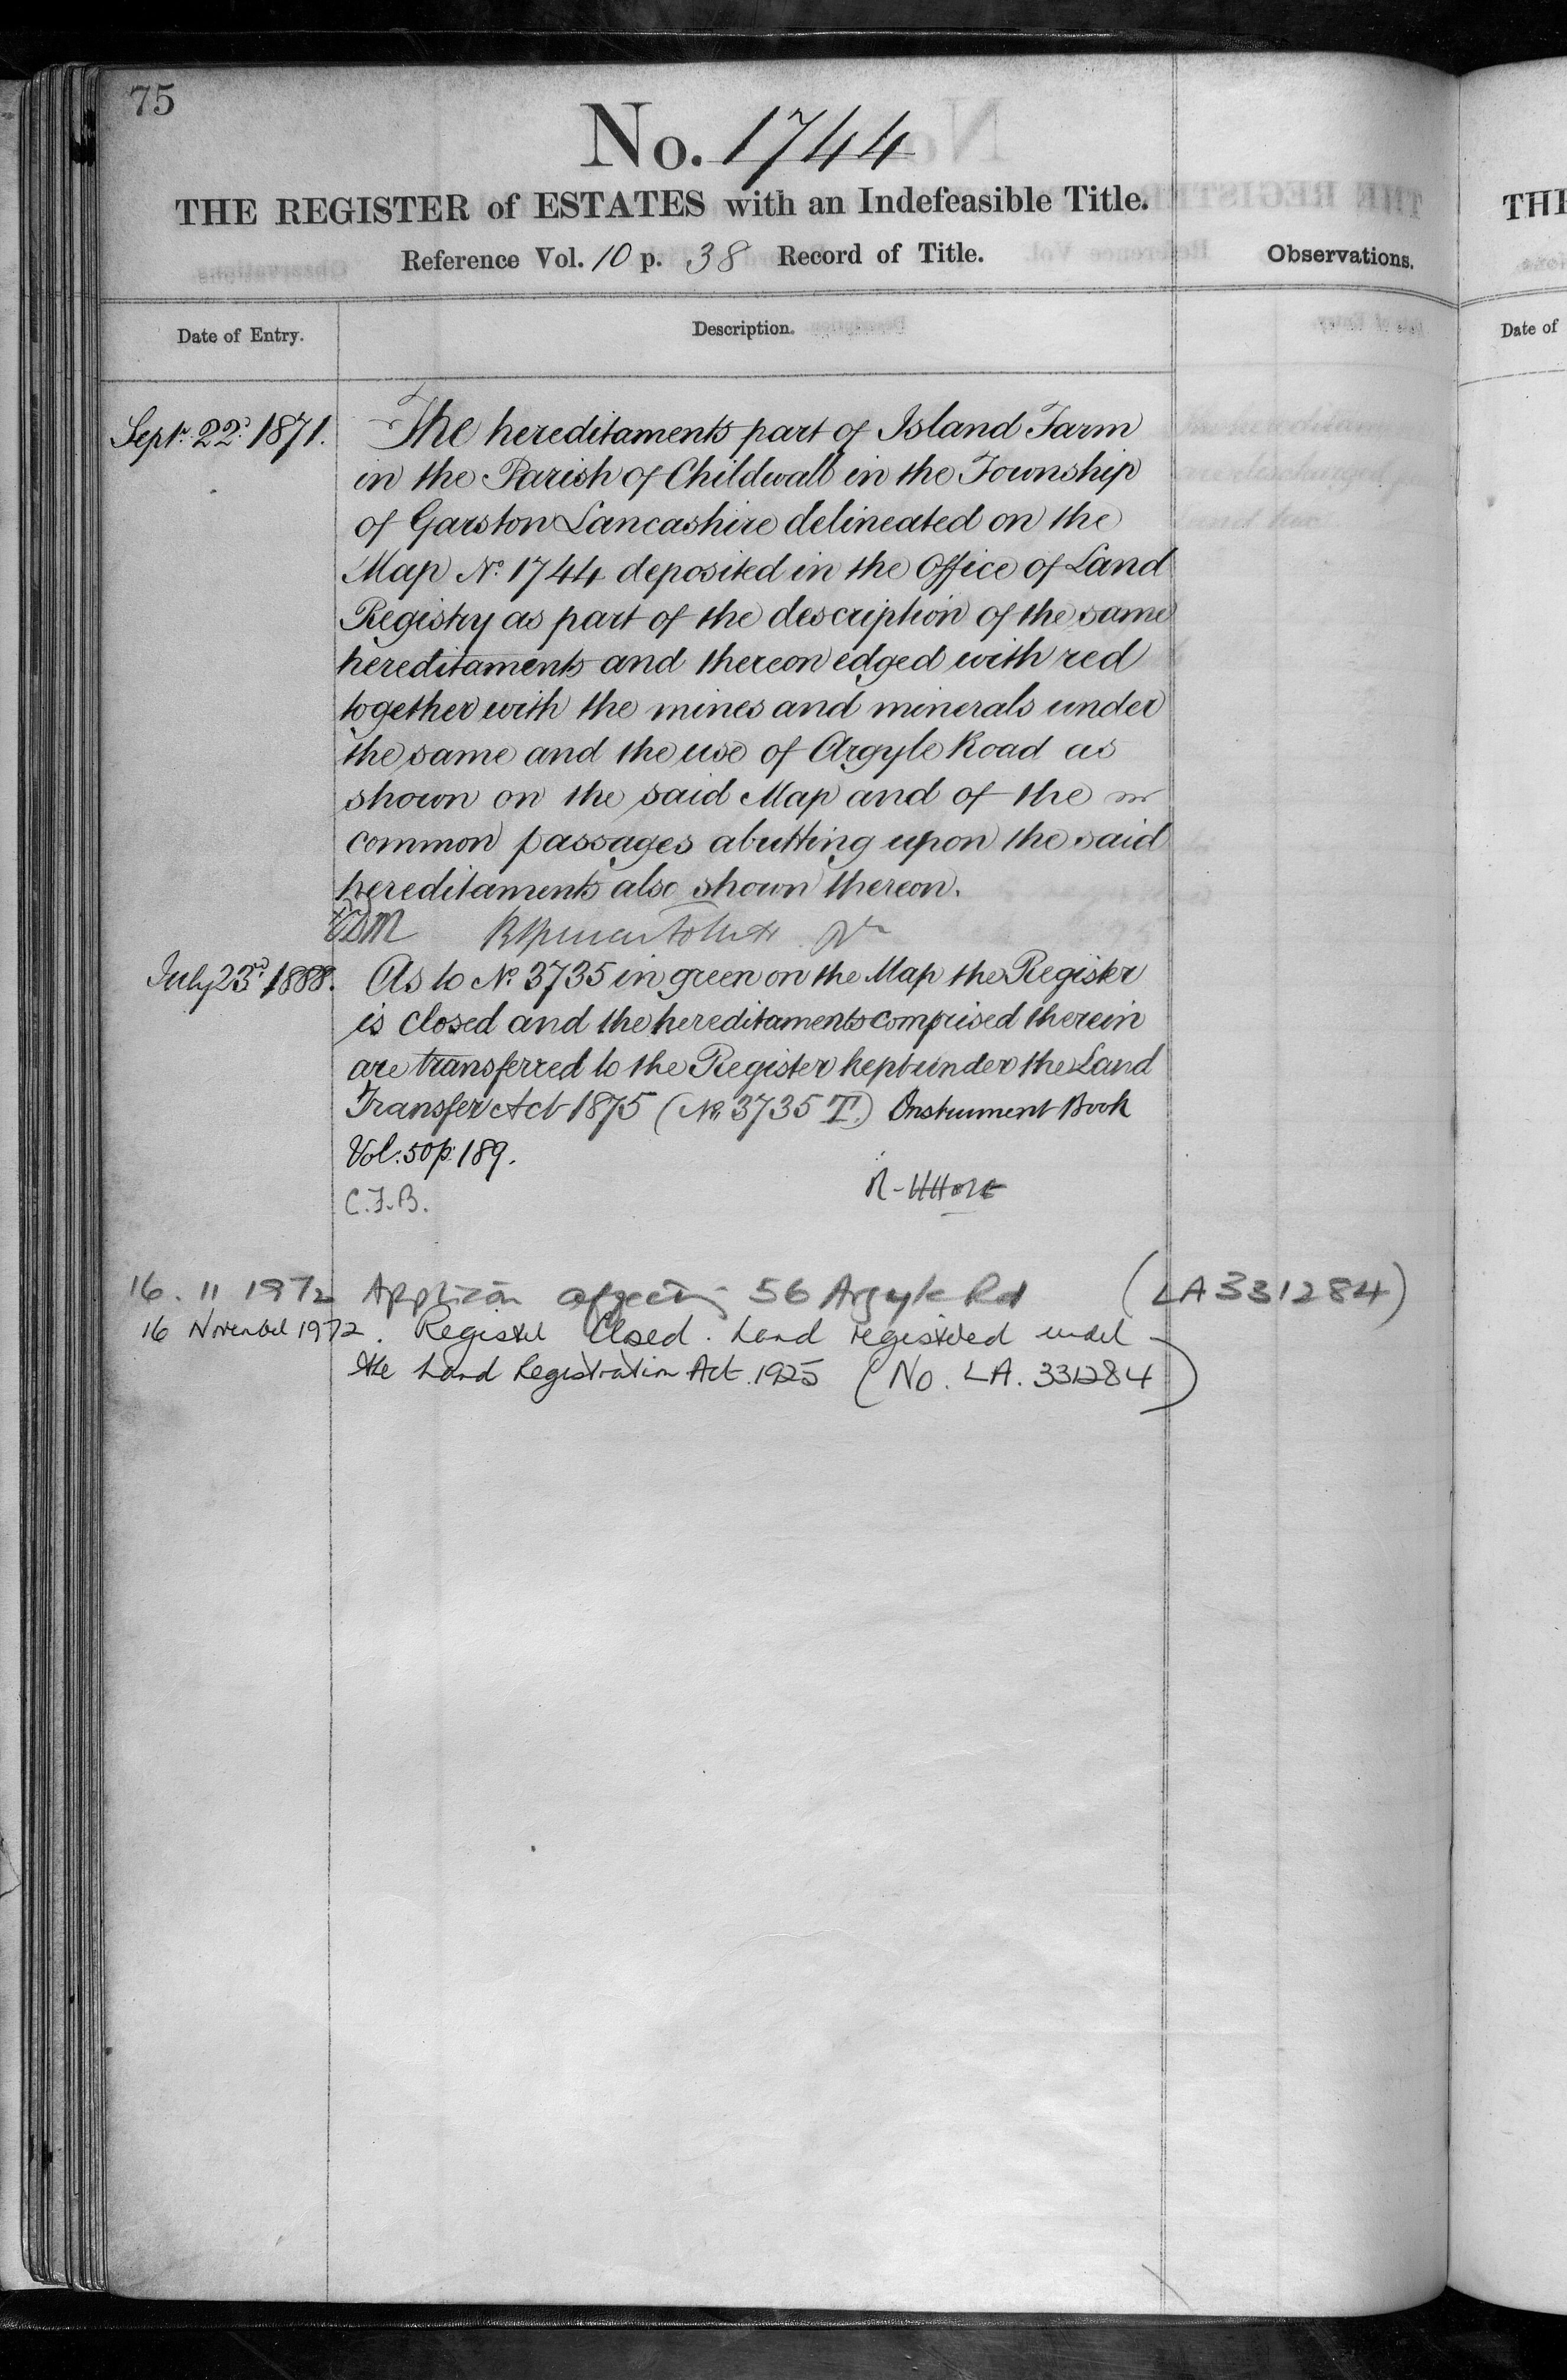 75
No. 1744
THE REGISTER of ESTATES with an Indefeasible Title.
Reference Vol. 10 p. 38 Record of Title.
Observations.
Date of Entry.
Description.
Sept.r 22d 1871. The hereditaments part of Island Farm
in the Parish of Childwall in the Township
of Garston Lancashire delineated on the
Map No. 1744 deposited in the Office of Land
Registry as part of the description of the same
hereditaments and thereon edged with red
together with the mines and minerals under
the same and the use of Argyle Road as
shown on the said Map and of the
common passages abutting upon the said
hereditaments also shown thereon.
July 23rd 1888. As to No. 3735 in green on the Map the Register
is closed and the hereditaments comprised therein
are transferred to the Register kept under the Land
Transfer Act 1875 (No. 3735 T.) Instrument Book
Vol: 50 p: 189.
C.F.B.
16. 11 1972 affecting 56 Argyle Rd (LA 331284)
16 November 1972. Register Closed. Land registered under
the Land Registration Act 1925 (No. LA. 331284)
THE
Date of